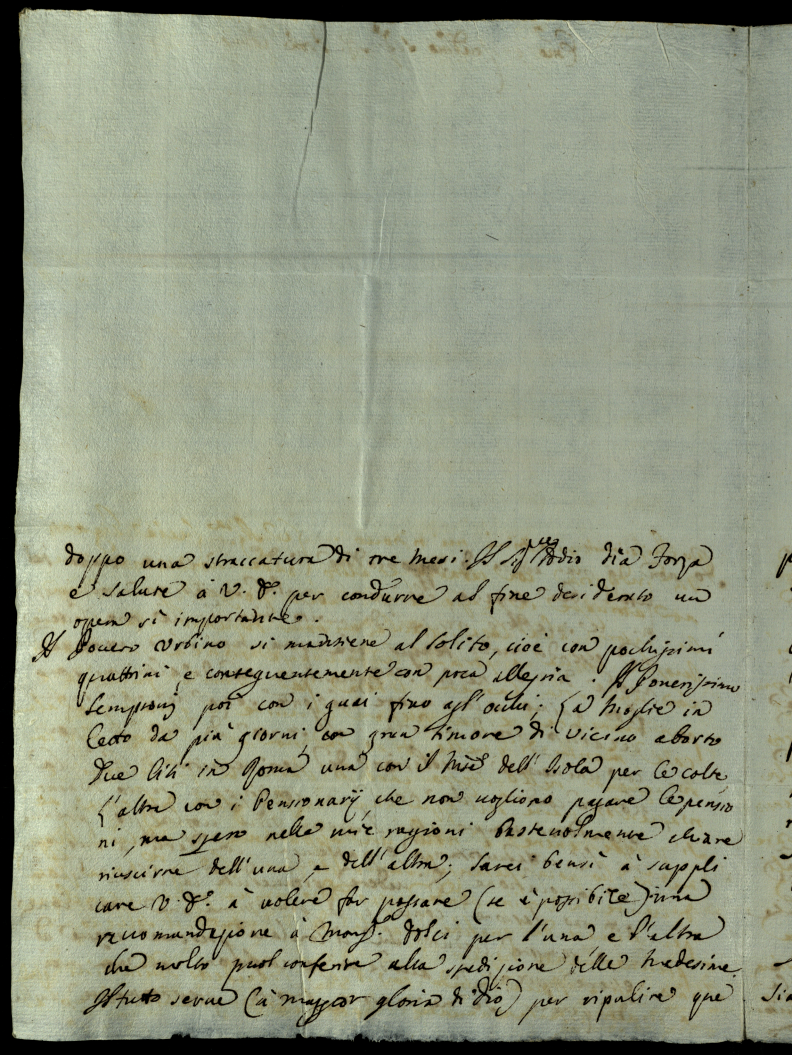 doppo una straccatura di tre mesi. Il Sig.re Iddio dia forza
e salute à V. S. per condurre al fine desiderato un
opera sì importante.
Il Povero Urbino si mantiene al solito, cioè con pochissimi
quattrini, e conseguentemente con poca allegria. Il Poverissimo
Sempronij poi con i guai fino agl'occhi; La Moglie in
letto da più giorni, con gran timore di vicino aborto
Due liti in Roma una con il dell'Isola per le colte,
L'altra con i Pensionarij, che non vogliono pagare le pensio
ni, ma spero nelle mie ragioni bastevolmente chiare
riuscirne dell'una, e dell'altra; Sarei bensì à suppli
care V. S. à volere far passare (se è possibile) una
recomandazione à Mons.r Dolci per l'una, e l'altra
che molto puol conferire alla spedizione delle medesime.
Il tutto serve (à maggior gloria di Dio) per ripulire que